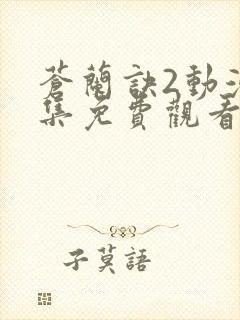 蒼蘭訣2動漫
集免費觀看
子莫語